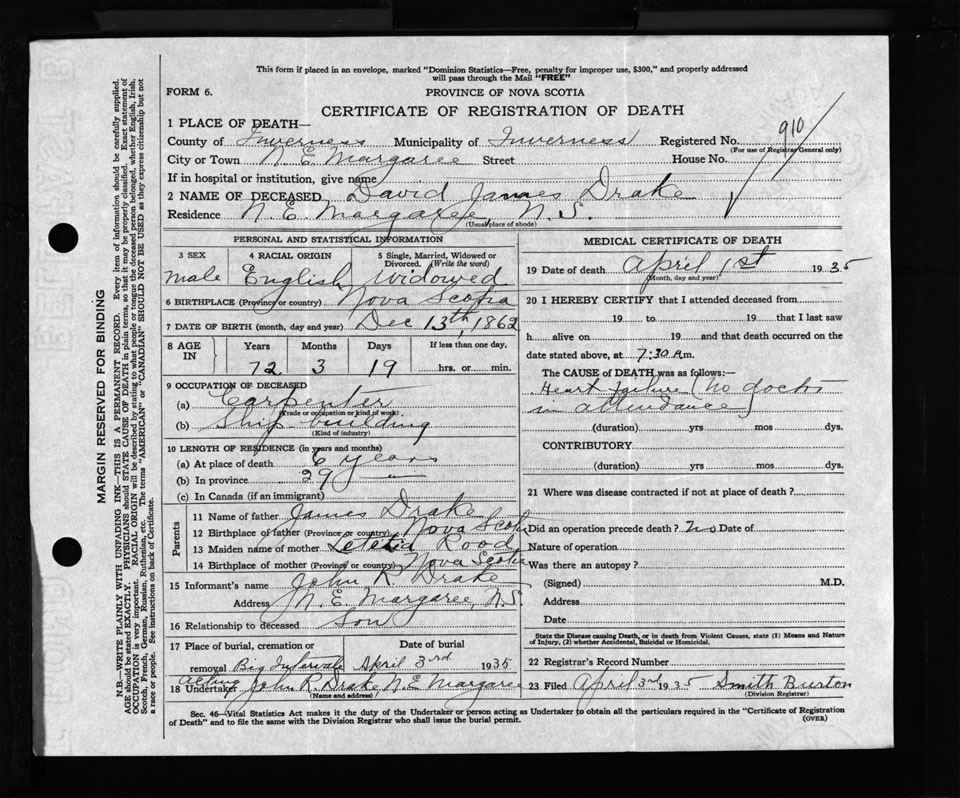 This form if placed in an envelope, marked "Dominion Statistics—Free, penalty for improper use, $300," and properly addressed
will pass through the Mail "FREE"
FORM 6.
PROVINCE OF NOVA SCOTIA
CERTIFICATE OF REGISTRATION OF DEATH
1 PLACE OF DEATH—
County of Inverness Municipality of Inverness Registered No. 910
(For use of Registrar General only)
City or Town N. E. Margaree Street House No.
If in hospital or institution, give name
2 NAME OF DECEASED David James Drake
Residence N. E. Margaree, N. S.
(Usual place of abode)
PERSONAL AND STATISTICAL INFORMATION
3 SEX 4 RACIAL ORIGIN 5 Single, Married, Widowed or Divorced. (Write the word)
male English Widowed
6 BIRTHPLACE (Province or country) Nova Scotia
7 DATE OF BIRTH (month, day and year) Dec 13th, 1862
8 AGE IN Years Months Days If less than one day,
72 3 19 hrs. or min.
9 OCCUPATION OF DECEASED
(a) Carpenter
(Trade or occupation or kind of work)
(b) Ship building
(Kind of industry)
10 LENGTH OF RESIDENCE (in years and months)
(a) At place of death 6 years
(b) In province 29 "
(c) In Canada (if an immigrant)
Parents
11 Name of father James Drake
12 Birthplace of father (Province or country) Nova Scotia
13 Maiden name of mother Letetid Rood
14 Birthplace of mother (Province or country) Nova Scotia
15 Informant's name John R. Drake
Address N. E. Margaree, N.S.
16 Relationship to deceased Son
17 Place of burial, cremation or removal Date of burial
Big Intervale April 3rd 1935
Acting
18 Undertaker John R. Drake N. E. Margaree
(Name and address)
MEDICAL CERTIFICATE OF DEATH
19 Date of death April 1st 1935
(Month, day and year)
20 I HEREBY CERTIFY that I attended deceased from
19 to 19 that I last saw
h alive on 19 and that death occurred on the
date stated above, at 7:30 A.m.
The CAUSE of DEATH was as follows:—
Heart failure (no doctor
in attendance)
(duration) yrs mos dys.
CONTRIBUTORY
(duration) yrs mos dys.
21 Where was disease contracted if not at place of death?
Did an operation precede death? No Date of
Nature of operation
Was there an autopsy?
(Signed) M.D.
Address
Date
State the Disease causing Death, or in death from Violent Causes, state (1) Means and Nature
of Injury, (2) whether Accidental, Suicidal or Homicidal.
22 Registrar's Record Number
23 Filed April 3rd 1935 Smith Burton
(Division Registrar)
Sec. 46—Vital Statistics Act makes it the duty of the Undertaker or person acting as Undertaker to obtain all the particulars required in the "Certificate of Registration
of Death" and to file the same with the Division Registrar who shall issue the burial permit. (OVER)
MARGIN RESERVED FOR BINDING
N.B.—WRITE PLAINLY WITH UNFADING INK—THIS IS A PERMANENT RECORD. Every item of information should be carefully supplied.
AGE should be stated EXACTLY. PHYSICIANS should STATE CAUSE OF DEATH in plain terms, so that it may be properly classified. Exact statement of
OCCUPATION is very important. RACIAL ORIGIN will be described by stating to what people or tongue the deceased person belonged, whether English, Irish,
Scotch, French, German, Russian, Ruthenian, etc. The terms "AMERICAN" or "CANADIAN" SHOULD NOT BE USED as they express citizenship but not
a race or people. See instructions on back of Certificate.